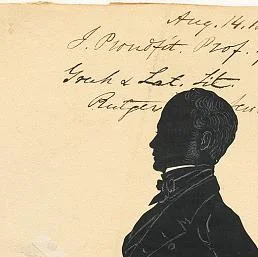 Aug. 14. 18
J. Proudfit Prof.
Greek & Lat. Lit.
Rutger